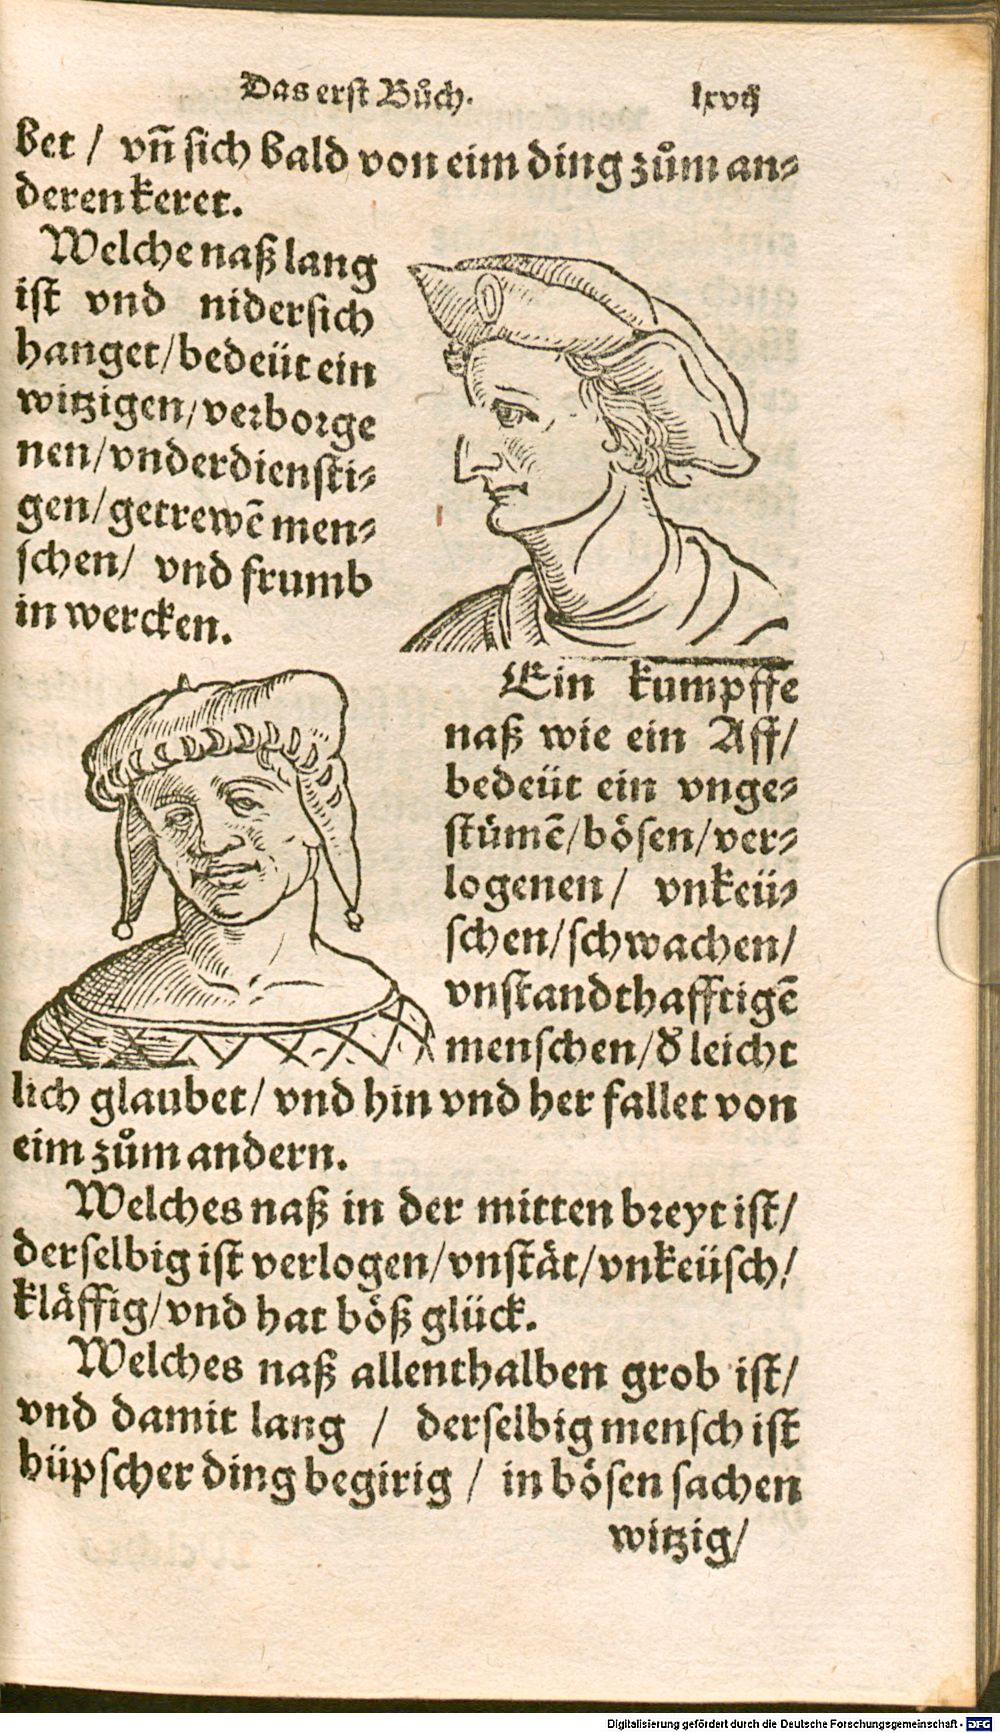 Das erst Bůch. lxvij
bet / vn̄ sich bald von eim ding zům an⸗
deren keret.
Welche naß lang
ist vnd nidersich
hanget/bedeüt ein
witzigen/verborge
nen/vnderdiensti⸗
gen/getrewē men⸗
schen/ vnd frumb
in wercken.
Ein kumpffe
naß wie ein Aff/
bedeüt ein vnge⸗
stümē/bösen/ver⸗
logenen/ vnkeü⸗
schen/schwachen/
vnstandthafftigē
menschen/đ leicht
lich glaubet/ vnd hin vnd her fallet von
eim zům andern.
Welches naß in der mitten breyt ist/
derselbig ist verlogen/vnstät/vnkeüsch/
kläffig/vnd hat böß glück.
Welches naß allenthalben grob ist/
vnd damit lang / derselbig mensch ist
hüpscher ding begirig / in bösen sachen
witzig/
Digitalisierung gefördert durch die Deutsche Forschungsgemeinschaft - DFG